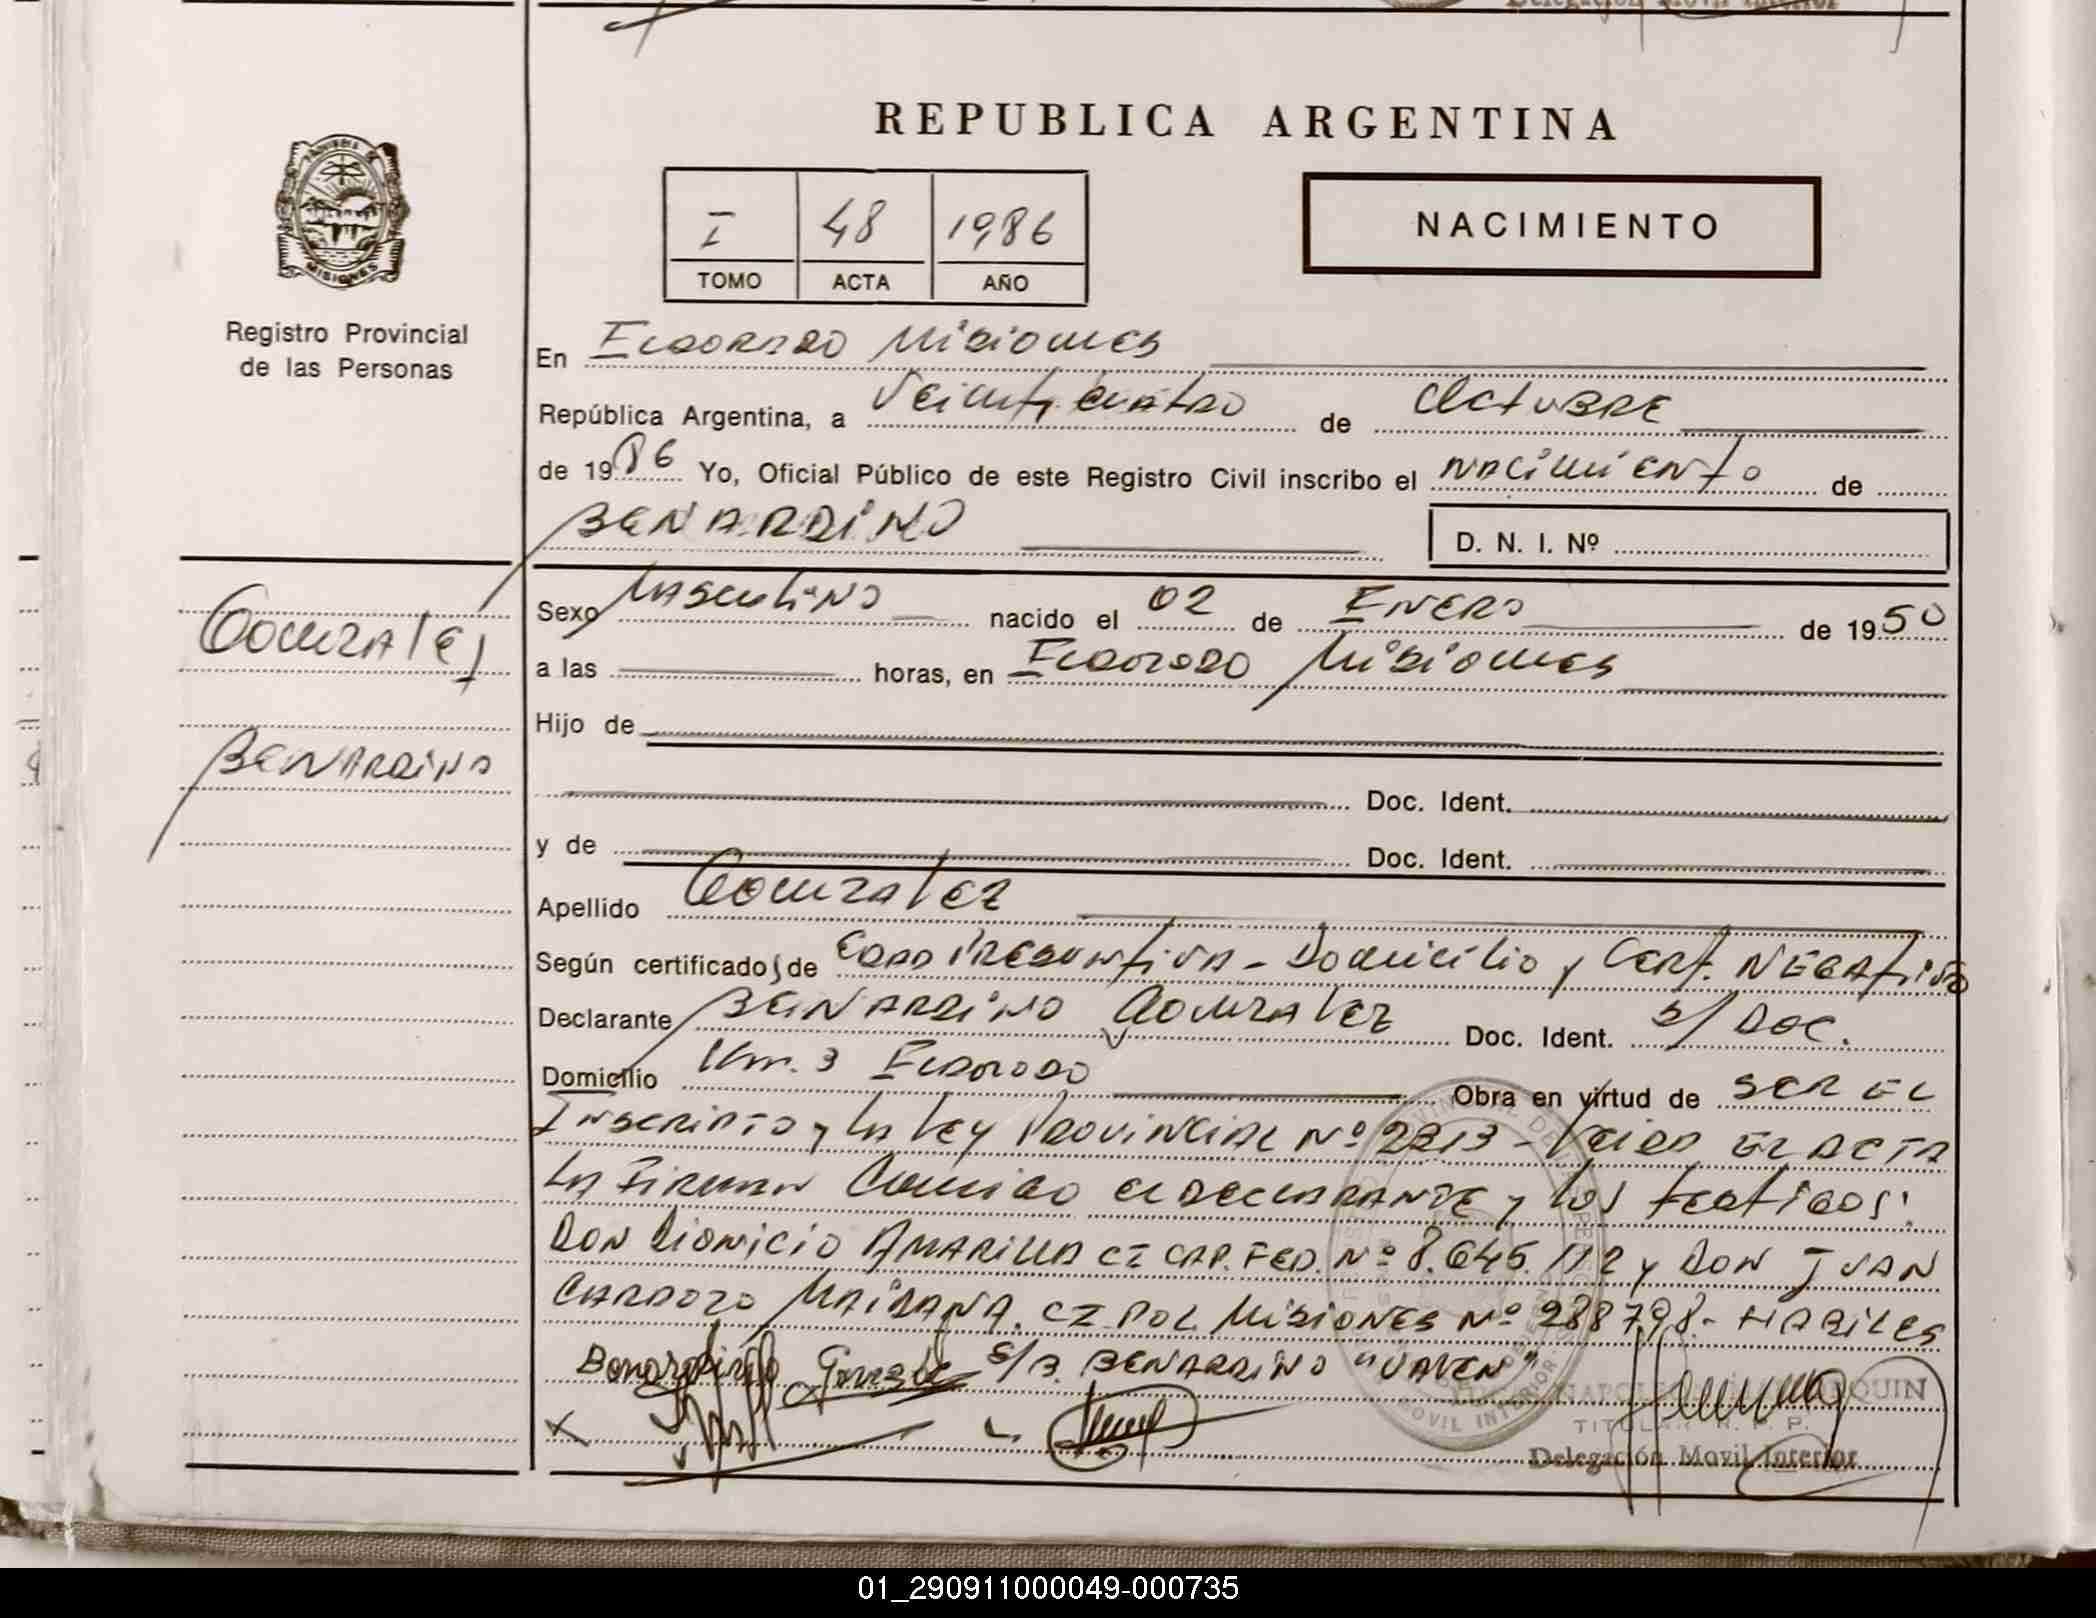 REPUBLICA ARGENTINA
PROVINCIA DE
MISIONES
I 48 1986
TOMO ACTA AÑO
NACIMIENTO
Registro Provincial
de las Personas
En Eldorado Misiones
República Argentina, a Veinticuatro de Octubre
de 1986 Yo, Oficial Público de este Registro Civil inscribo el nacimiento de
BENARDINO
D. N. I. Nº
Gonzalez
Benardino
Sexo Masculino nacido el 02 de Enero de 1950
a las horas, en Eldorado Misiones
Hijo de
Doc. Ident.
y de Doc. Ident.
Apellido Gonzalez
Según certificado/s de Edad Presuntiva - Domicilio y Cert. Negativo
Declarante Benardino Gonzalez Doc. Ident. S/ Doc.
Domicilio Km. 3 Eldorado Obra en virtud de ser el
Inscripto y la Ley Provincial Nº 2213 - Leida el acta
la firman conmigo el declarante y los testigos:
Don Dionicio Amarilla CI CAP. FED. Nº 8.645.112 y Don Juan
Cardozo Maidana. CI. Pol. Misiones Nº 288798.- Habiles
S/B. BENARDINO "VALEN"
TITULAR R. P. P.
Delegación Movil Interior
01_290911000049-000735